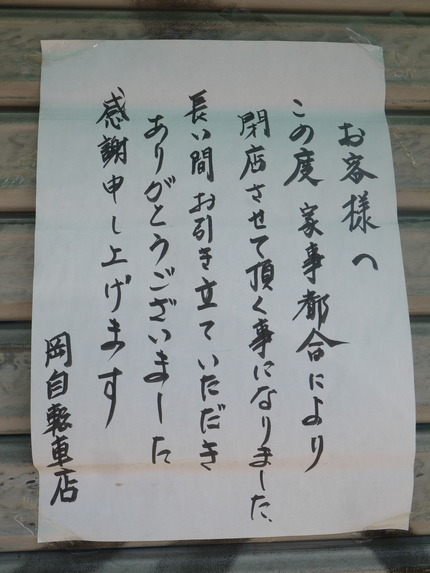 お客様へ
この度家事都合により
閉店させて頂く事になりました、
長い間お引き立ていただき
ありがとうございました
感謝申し上げます
岡自転車店